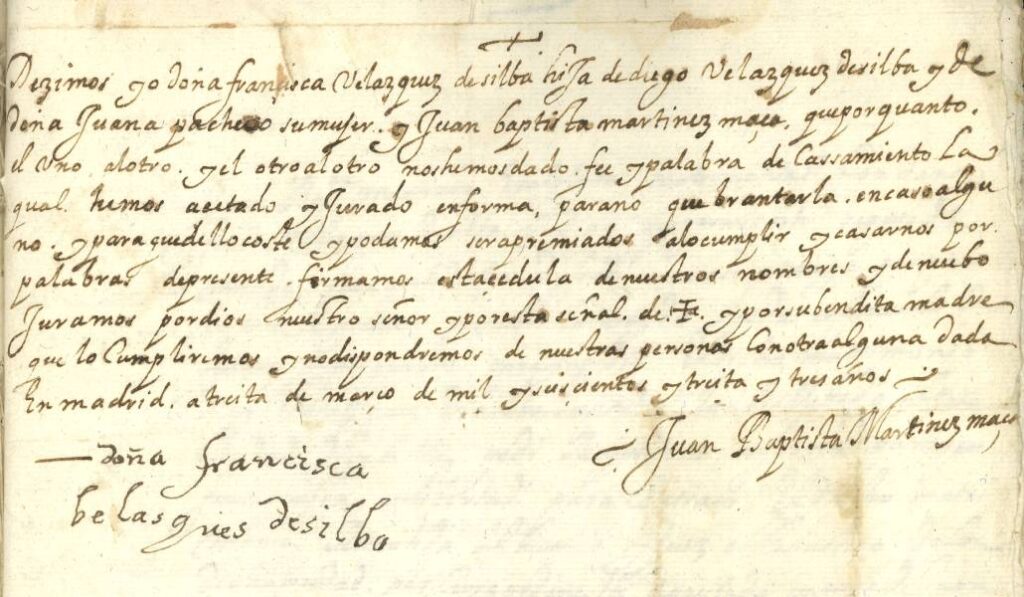 Dezimos yo doña françisca Velazquez desilba hija de diego Velazquez desilba y de
doña Juana pacheco sumujer. y Juan baptista martinez maço. queporquanto.
el uno alotro. y el otro alotro noshemosdado fee y palabra de Cassamiento La
qual. hemos acetado y Jurado enforma, parano quebrantarla. encasoalgu
no. y paraquedelloconste y podamos serapremiados alocumplir y casarnos por.
palabras depresente. firmamos estacedula denuestros nombres y denuebo
Juramos pordios nuestro señor y poresta señal. de. +. y porsubendita madre
que lo Cumpliremos y nodispondremos de nuestras personas Conotraalguna dada
En madrid. atreita de março de mil y seiscientos y treita y tres años
Juan Baptista Martinez maço
doña francisca
belasques desilba